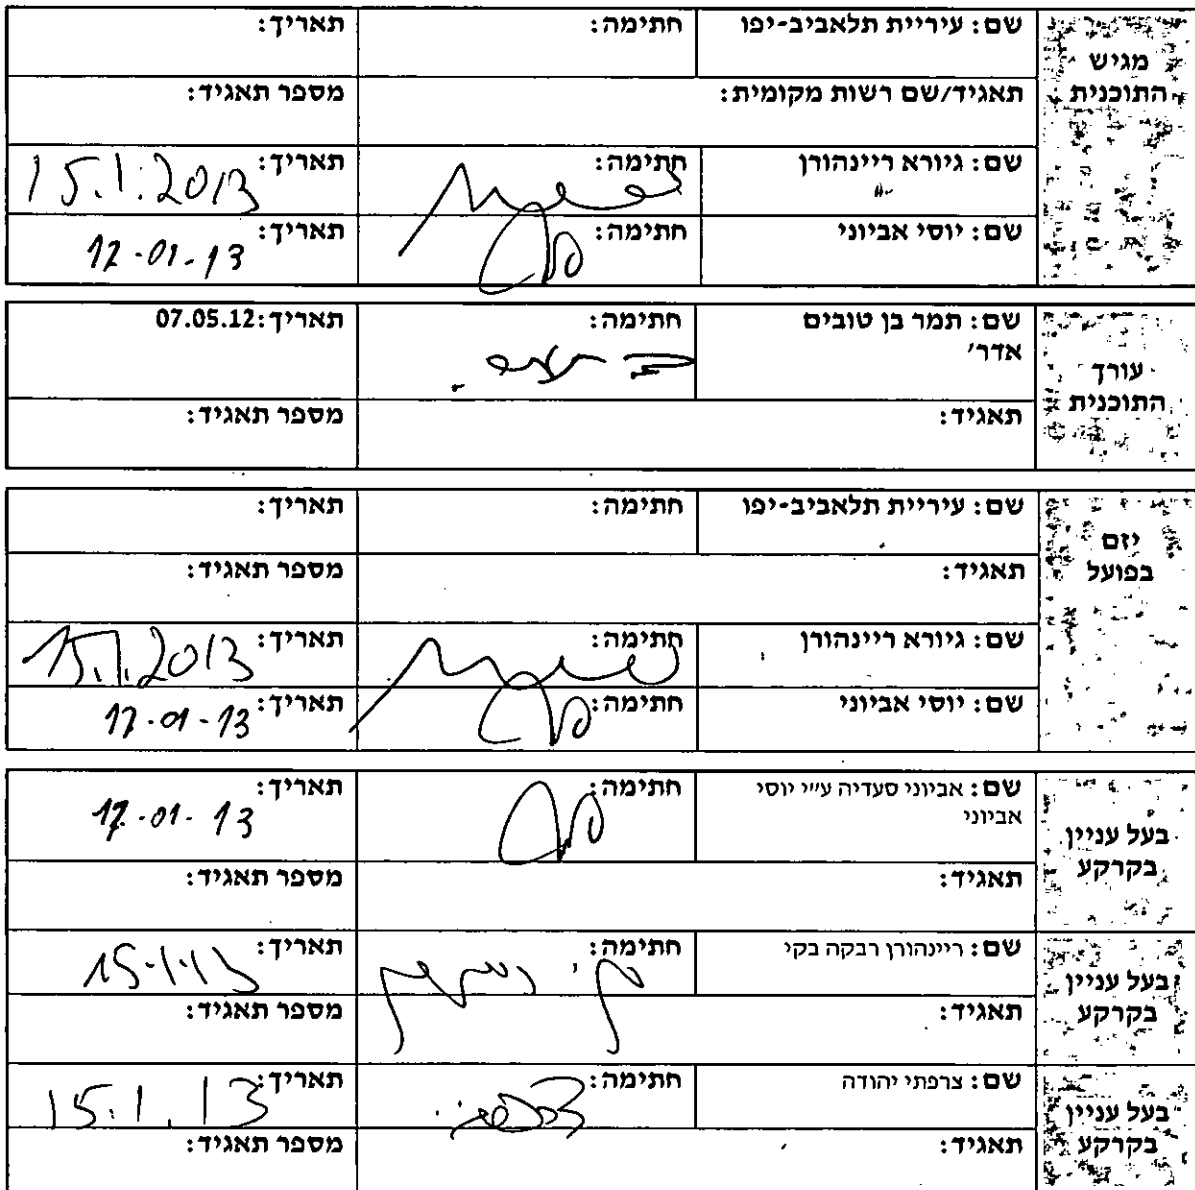 מגיש התוכנית
שם: עיריית תלאביב-יפו חתימה: תאריך:
תאגיד/שם רשות מקומית: מספר תאגיד:
שם: גיורא ריינהורן חתימה: תאריך: 15.1.2013
שם: יוסי אביוני חתימה: תאריך: 17-01-13
עורך התוכנית
שם: תמר בן טובים חתימה: תאריך: 07.05.12
אדר׳
תאגיד: מספר תאגיד:
יזם בפועל
שם: עיריית תלאביב-יפו חתימה: תאריך:
תאגיד: מספר תאגיד:
שם: גיורא ריינהורן חתימה: תאריך: 15.1.2013
שם: יוסי אביוני חתימה: תאריך: 17-01-13
בעל עניין בקרקע
שם: אביוני סעדיה ע״י יוסי חתימה: תאריך: 17-01-13
אביוני
תאגיד: מספר תאגיד:
בעל עניין בקרקע
שם: ריינהורן רבקה בקי חתימה: תאריך: 15.1.13
תאגיד: מספר תאגיד:
בעל עניין בקרקע
שם: צרפתי יהודה חתימה: תאריך: 15.1.13
תאגיד: מספר תאגיד: